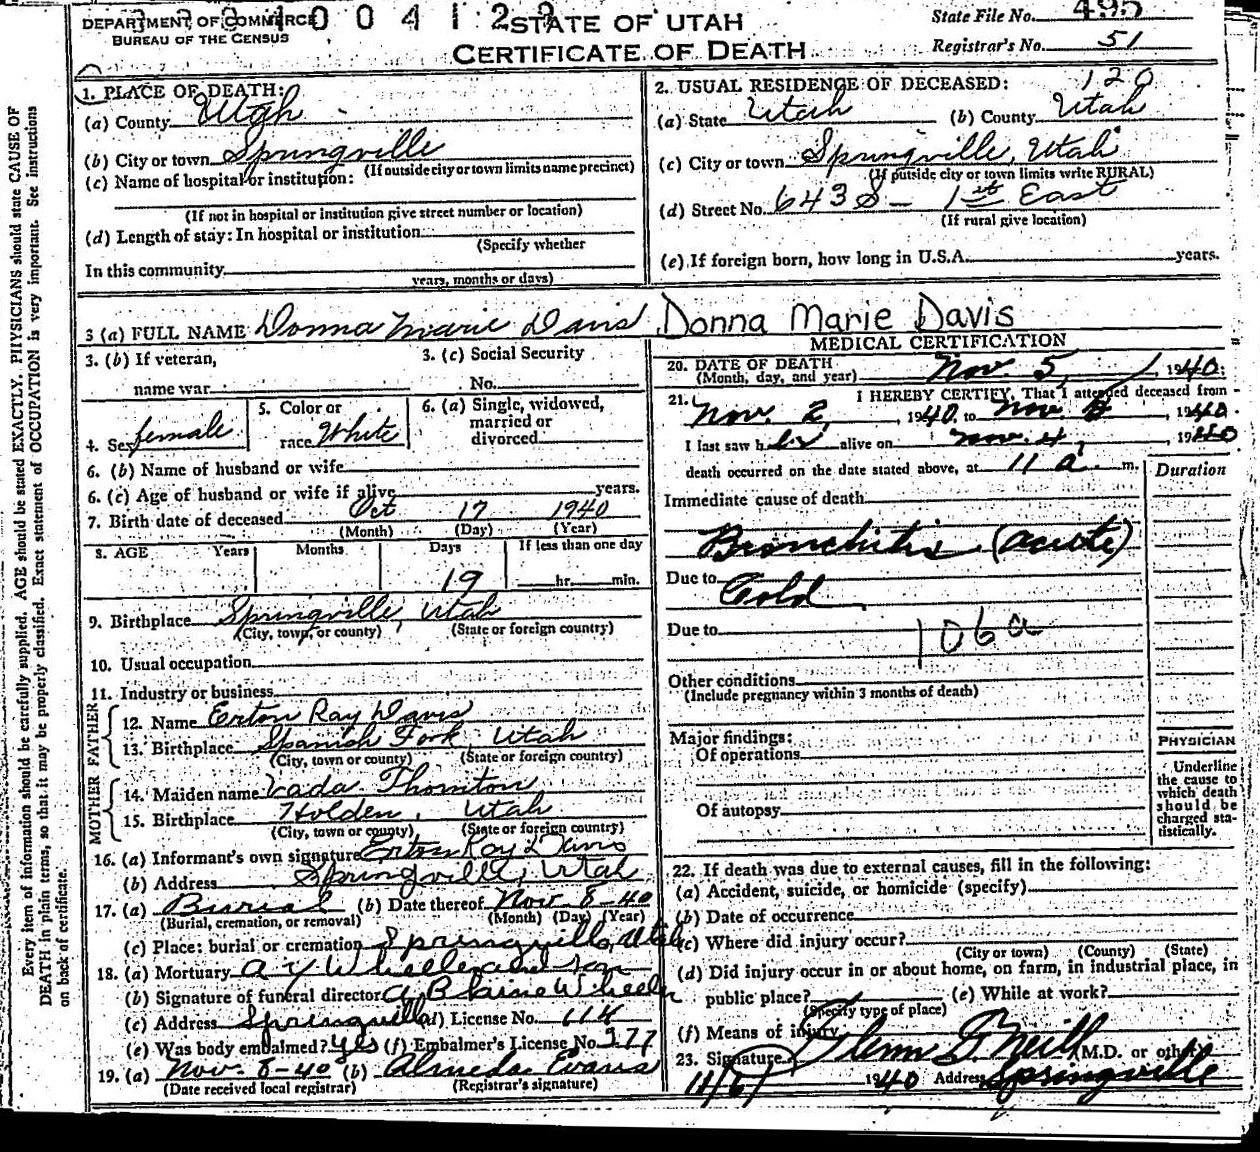 DEPARTMENT OF COMMERCE
BUREAU OF THE CENSUS
STATE OF UTAH
CERTIFICATE OF DEATH
State File No. 495
Registrar's No. 51
Every item of information should be carefully supplied. AGE should be stated EXACTLY. PHYSICIANS should state CAUSE OF
DEATH in plain terms, so that it may be properly classified. Exact statement of OCCUPATION is very important. See instructions
on back of certificate.
1. PLACE OF DEATH:
(a) County Utah
(b) City or town Springville
(If outside city or town limits name precinct)
(c) Name of hospital or institution:
(If not in hospital or institution give street number or location)
(d) Length of stay: In hospital or institution
(Specify whether
In this community
years, months or days)
2. USUAL RESIDENCE OF DECEASED: 120
(a) State Utah (b) County Utah
(c) City or town Springville, Utah
(If outside city or town limits write RURAL)
(d) Street No. 643 S - 1st East
(If rural give location)
(e) If foreign born, how long in U.S.A. years.
3 (a) FULL NAME Donna Marie Davis Donna Marie Davis
3. (b) If veteran,
name war
3. (c) Social Security
No.
4. Sex female
5. Color or
race White
6. (a) Single, widowed,
married or
divorced
6. (b) Name of husband or wife
6. (c) Age of husband or wife if alive years.
7. Birth date of deceased Oct 17 1940
(Month) (Day) (Year)
8. AGE Years Months Days If less than one day
19 hr. min.
9. Birthplace Springville, Utah
(City, town, or county) (State or foreign country)
10. Usual occupation
11. Industry or business
FATHER
12. Name Erton Ray Davis
13. Birthplace Spanish Fork Utah
(City, town or county) (State or foreign country)
MOTHER
14. Maiden name Vada Thornton
15. Birthplace Holden, Utah
(City, town or county) (State or foreign country)
16. (a) Informant's own signature Erton Ray Davis
(b) Address Springville, Utah
17. (a) Burial (b) Date thereof Nov 8-40
(Burial, cremation, or removal) (Month) (Day) (Year)
(c) Place: burial or cremation Springville, Utah
18. (a) Mortuary A Y Wheeler and Son
(b) Signature of funeral director A. Blaine Wheeler
(c) Address Springville (d) License No. 114
(e) Was body embalmed? yes (f) Embalmer's License No. 277
19. (a) Nov. 8-40 (b) Almeda Evans
(Date received local registrar) (Registrar's signature)
MEDICAL CERTIFICATION
20. DATE OF DEATH
(Month, day, and year) Nov 5, 1940;
21. I HEREBY CERTIFY, That I attended deceased from
Nov. 2, 1940, to Nov. 1940.
I last saw her alive on Nov. 4, 1940
death occurred on the date stated above, at 11 a. m.
Duration
Immediate cause of death
Bronchitis (acute)
Due to Cold
Due to 106a
Other conditions
(Include pregnancy within 3 months of death)
Major findings:
Of operations
Of autopsy
PHYSICIAN
Underline
the cause to
which death
should be
charged sta-
tistically.
22. If death was due to external causes, fill in the following:
(a) Accident, suicide, or homicide (specify)
(b) Date of occurrence
(c) Where did injury occur?
(City or town) (County) (State)
(d) Did injury occur in or about home, on farm, in industrial place, in
public place? (e) While at work?
(Specify type of place)
(f) Means of injury
23. Signature M.D. or other
11/6/ 1940 Address Springville